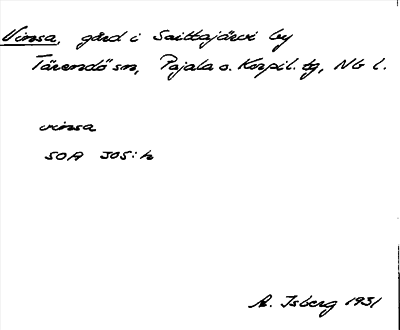 Vinsa, gård i Saittajärvi by
Tärendö sn, Pajala o. Korpil. tg, NG l.
vinsa
SOA 505:h
A. Isberg 1931